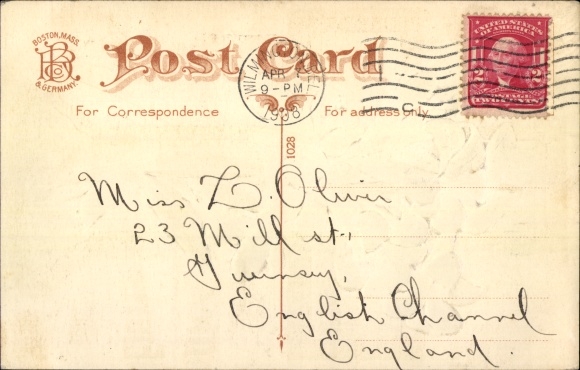 BOSTON, MASS.
& GERMANY.
Post Card
For Correspondence
For address only.
WILMINGTON, DEL.
APR
9-PM
1908
C
UNITED STATES
OF AMERICA
2 2
POSTAGE
TWO CENTS
1028
Miss Z. Olivir
23 Mill st.,
Guernsey,
English Channel
England.